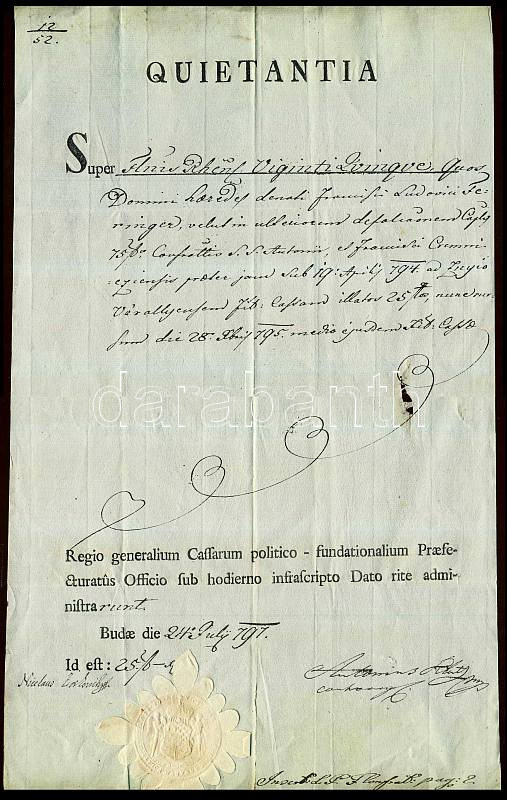 12
52.
QUIETANTIA
Super Flnis Rhens. Viginti Quinque, Quos
Domini hæredes denati Francisci Ludovici Fe-
ringer, velut in ulteriorem defalcationem
75 f Confrattis S. S. Antonii, et Francisci
præter jam sub 19 Aprilij 794. ad
Várallyensem Fid: Cassam illatos 25 nunc
sum die 28 Xbris 795. medio ejusdem Fid: Cassæ
darabanth
Regio generalium Caſſarum politico - fundationalium Præfe-
cturatûs Officio ſub hodierno infraſcripto Dato rite admi-
niſtrarunt.
Budæ die 24a July 797.
Id eſt: 25 f
Nicolaus
Antonius
pag: 2.